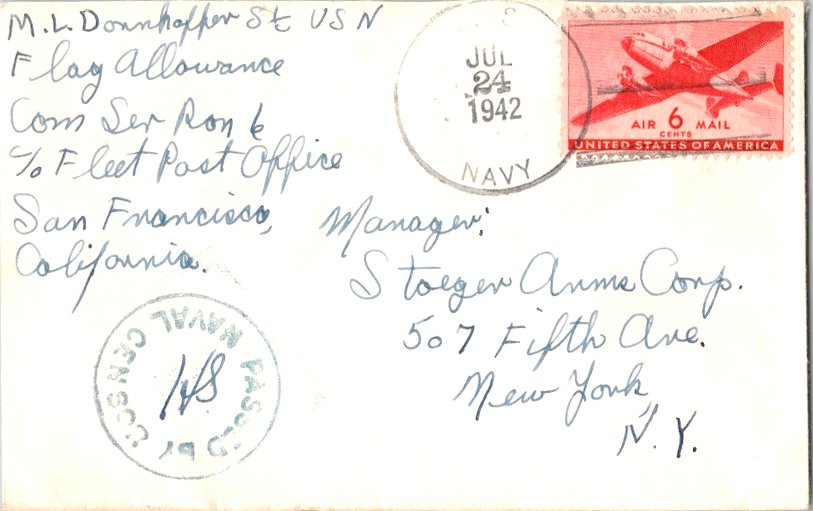 M. L. Donnhoffer St USN
Flag Allowance
Com Ser Ron 6
c/o Fleet Post Office
San Francisco,
California.
S
JUL
24
1942
NAVY
AIR 6 MAIL
CENTS
UNITED STATES OF AMERICA
Manager:
Stoeger Arms Corp.
507 Fifth Ave.
New York,
N.Y.
PASSED BY
NAVAL CENSOR